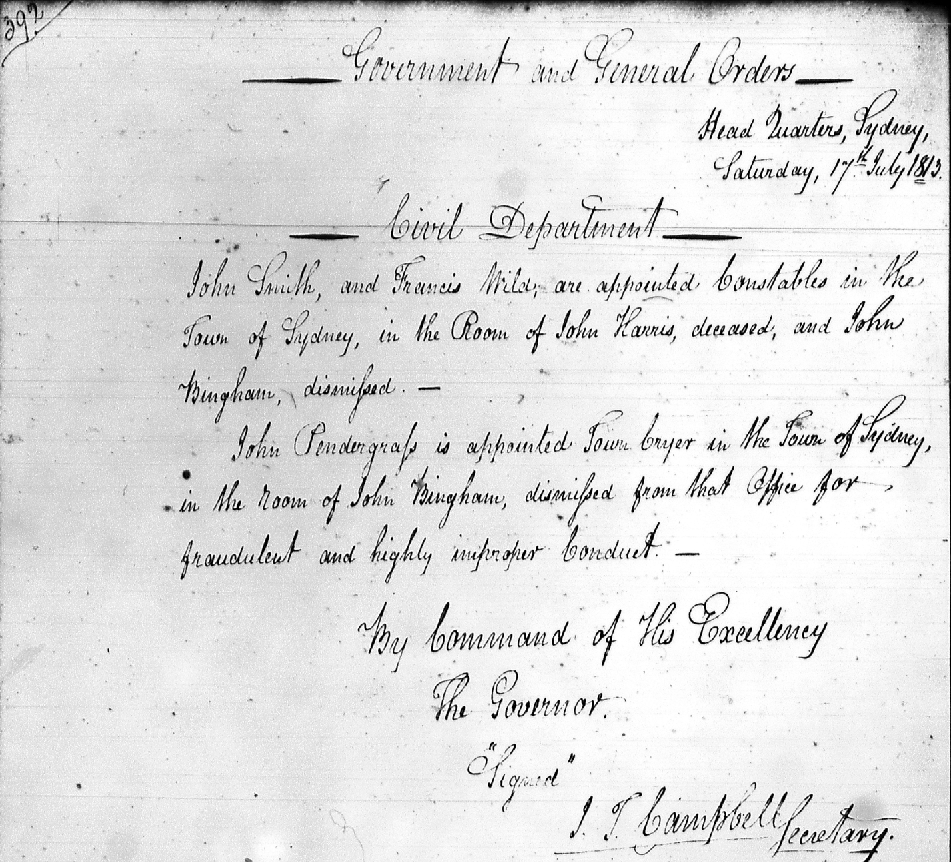 392
Government and General Orders
Head Quarters, Sydney,
Saturday, 17th July 1813.
Civil Department
John Smith, and Francis Wild, are appointed Constables in the
Town of Sydney, in the Room of John Harris, deceased, and John
Bingham, dismiſsed. —
John Pendergraſs is appointed Town Cryer in the Town of Sydney,
in the room of John Bingham, dismiſsed from that Office for
fraudulent and highly improper Conduct. —
By Command of His Excellency
The Governor.
"Signed"
J. T. Campbell Secretary.